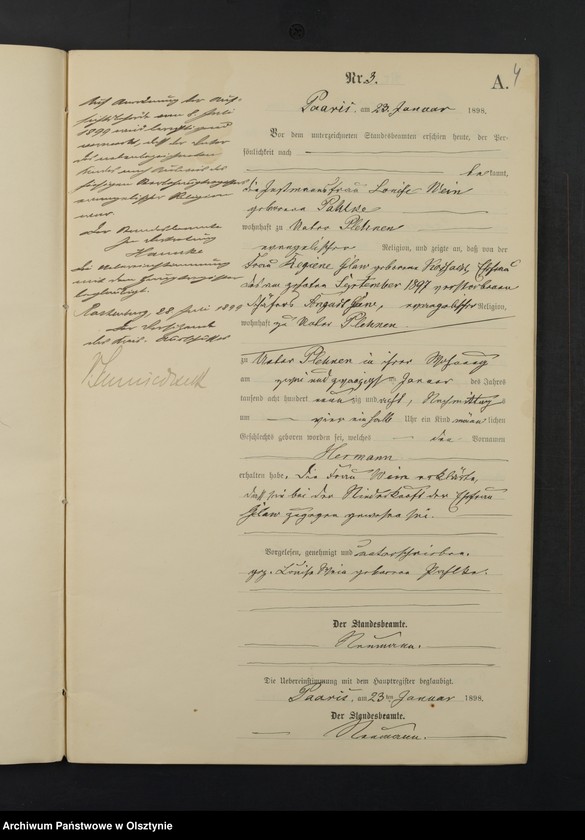 Nr. 3.
A. 4
Paaris, am 23. Januar 1898.
Vor dem unterzeichneten Standesbeamten erschien heute, der Per-
sönlichkeit nach
bekannt,
die Instmannsfrau Louise Wein
geborene Pahlke
wohnhaft zu Unter Plehnen
evangelischer Religion, und zeigte an, daß von der
Frau Regine geborene Ehefrau
des am September 1897 verstorbenen
evangelischer Religion,
wohnhaft zu Unter Plehnen
zu Unter Plehnen in ihrer Wohnung
am zwei und zwanzigsten Januar des Jahres
tausend acht hundert neunzig und acht, Nachmittag
um vier einhalb Uhr ein Kind männlichen
Geschlechts geboren worden sei, welches den Vornamen
Hermann
erhalten habe. Die Frau Wein erklärte,
daß sie bei der Niederkunft der Ehefrau
zugegen gewesen sei.
Vorgelesen, genehmigt und unterschrieben.
gez. Louise Wein geborene Pahlke.
Der Standesbeamte.
Neumann.
Die Uebereinstimmung mit dem Hauptregister beglaubigt.
Paaris, am 23 ten Januar 1898.
Der Standesbeamte.
Neumann.
Auf Anordnung der Auf-
sichtsbehörde vom Juli
1899 wird und
vermerkt, daß der Vater
des nebenbezeichneten
Kindes
evangelischer Religion
war.
Der Standesbeamte
In Vertretung
Die Uebereinstimmung
mit dem Hauptregister
beglaubigt.
Rastenburg, 28 Juli 1899
Der Vorsitzende
des Kreis-Ausschusses
Archiwum Państwowe w Olsztynie